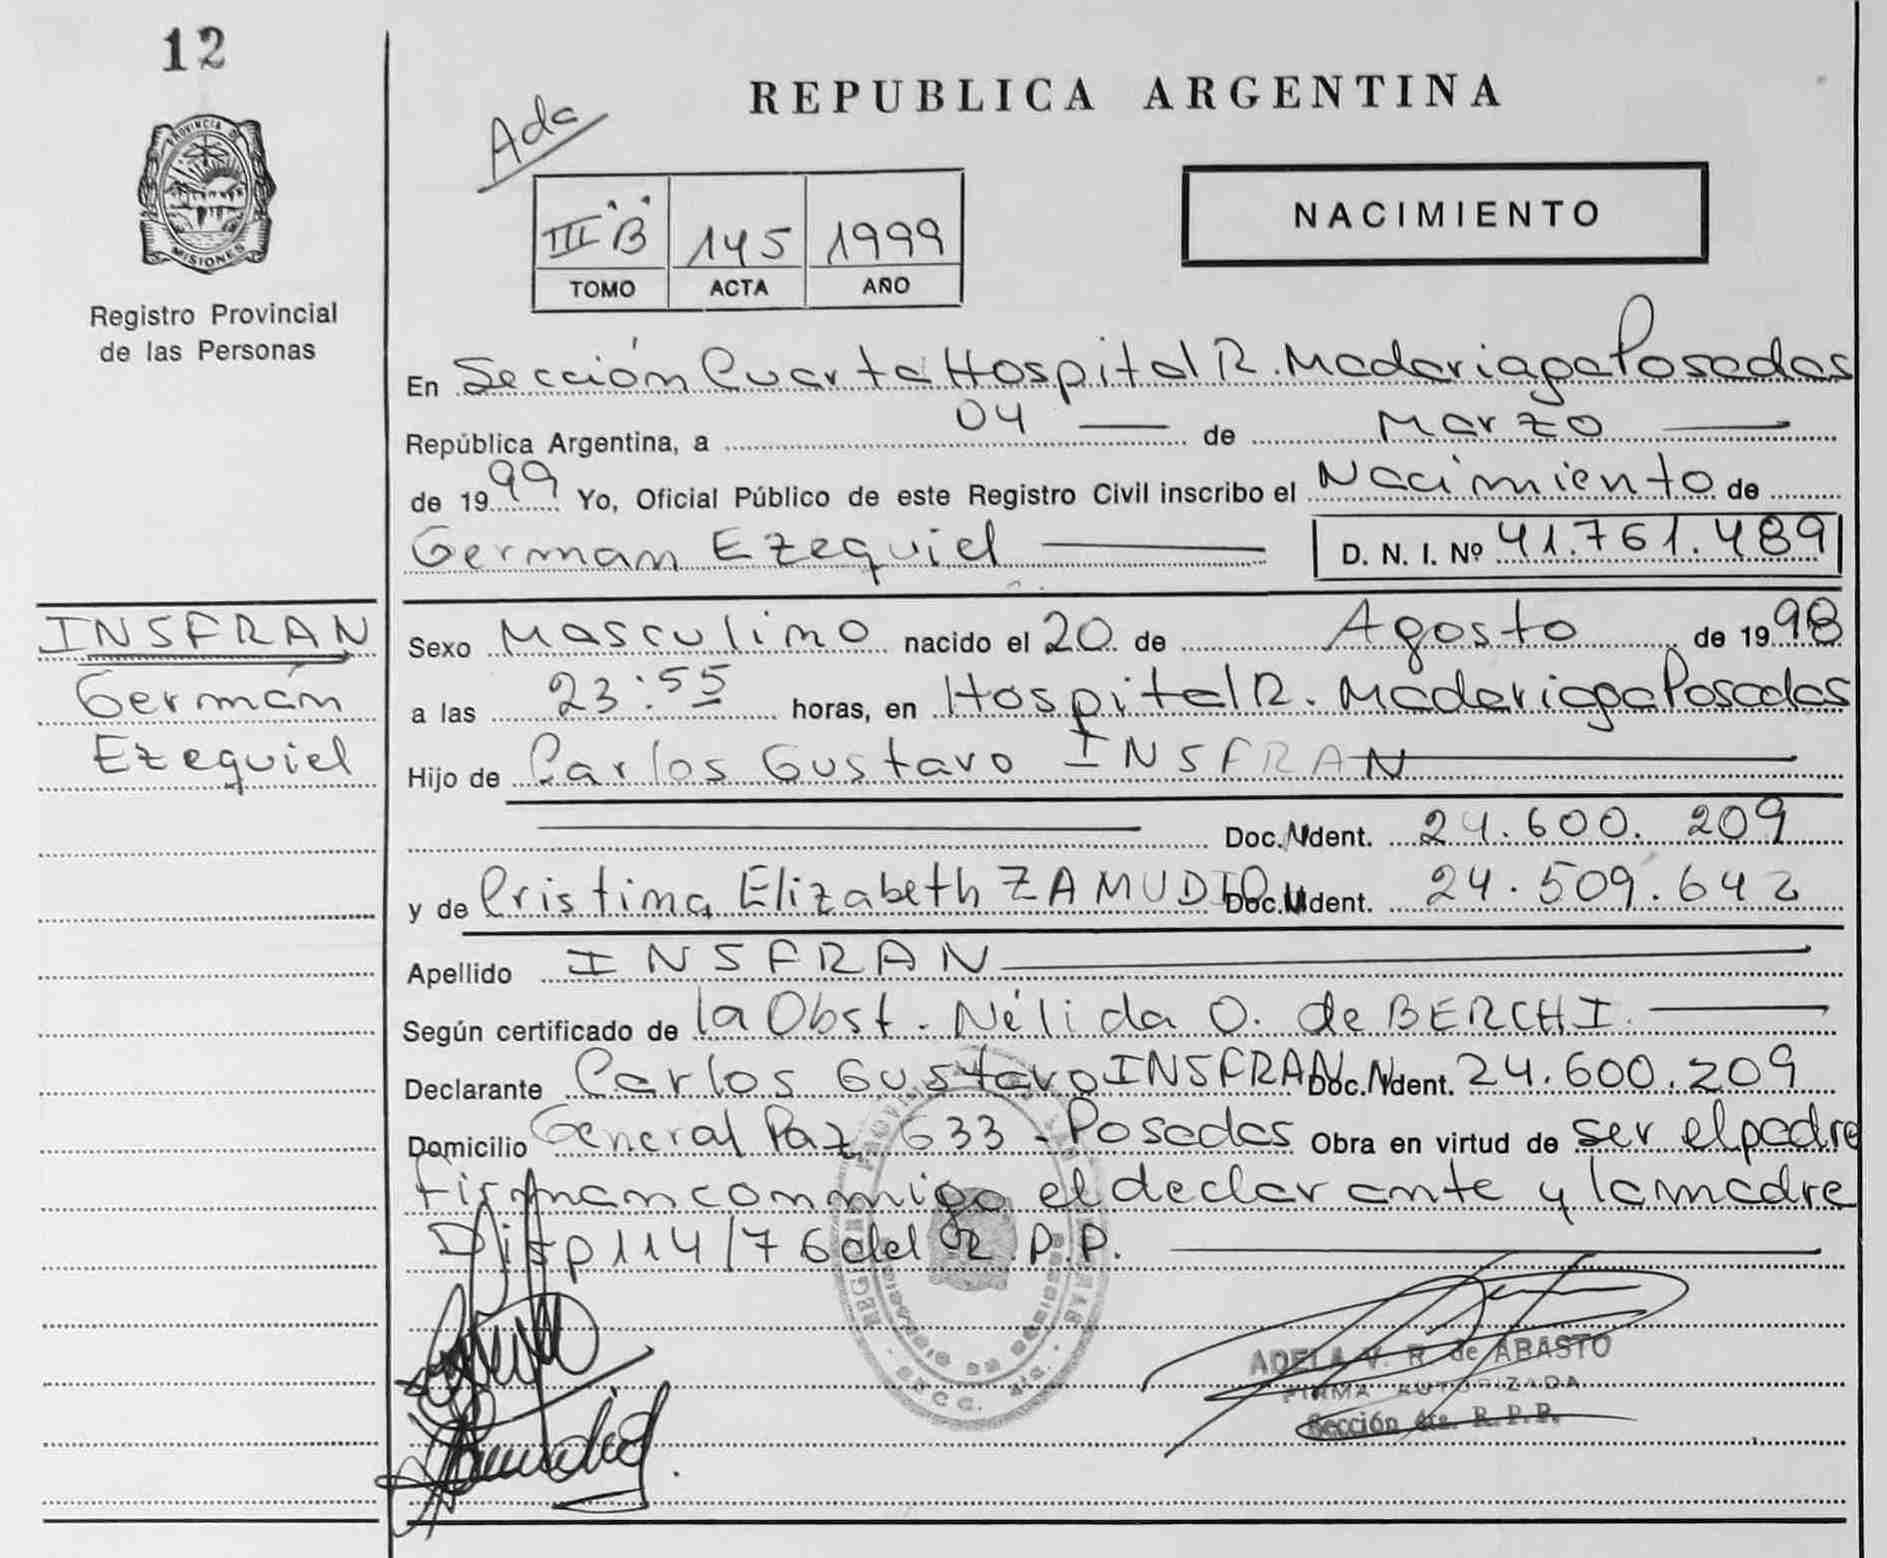 12
PROVINCIA D
MISIONES
Registro Provincial
de las Personas
INSFRAN
Germán
Ezequiel
REPUBLICA ARGENTINA
Ada
III "B" 145 1999
TOMO ACTA AÑO
NACIMIENTO
En Sección Cuarta Hospital R. Madariaga Posadas
República Argentina, a 04 de Marzo
de 1999 Yo, Oficial Público de este Registro Civil inscribo el Nacimiento de
German Ezequiel D. N. I. Nº 41.761.489
Sexo Masculino nacido el 20 de Agosto de 1998
a las 23:55 horas, en Hospital R. Madariaga Posadas
Hijo de Carlos Gustavo INSFRAN
Doc. Ndent. 24.600.209
y de Cristina Elizabeth ZAMUDIO Doc. Ndent. 24.509.642
Apellido INSFRAN
Según certificado de la Obst. Nélida O. de BERCHI.
Declarante Carlos Gustavo INSFRAN Doc. Ndent. 24.600.209
Domicilio General Paz 633 - Posadas Obra en virtud de ser el padre
firman conmigo el declarante y la madre
Disp 114/76 del R.P.P.
ADELA V. R. de ABASTO
FIRMA AUTORIZADA
Sección 4ta. R. P. P.